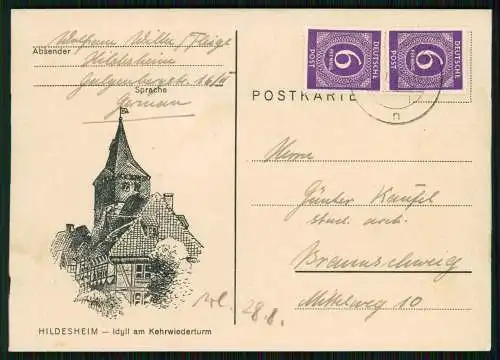 Absender
Wolfram Wille /
Hildesheim
Galgenbergstr. 16
Sprache
German
HILDESHEIM — Idyll am Kehrwiederturm
DEUTSCHE
POST
6
PFENNIG
DEUTSCHE
POST
6
PFENNIG
POSTKARTE
n
Herrn
Günter Kaufel
stud. arch.
Braunschweig
Mittelweg 10
28.8.